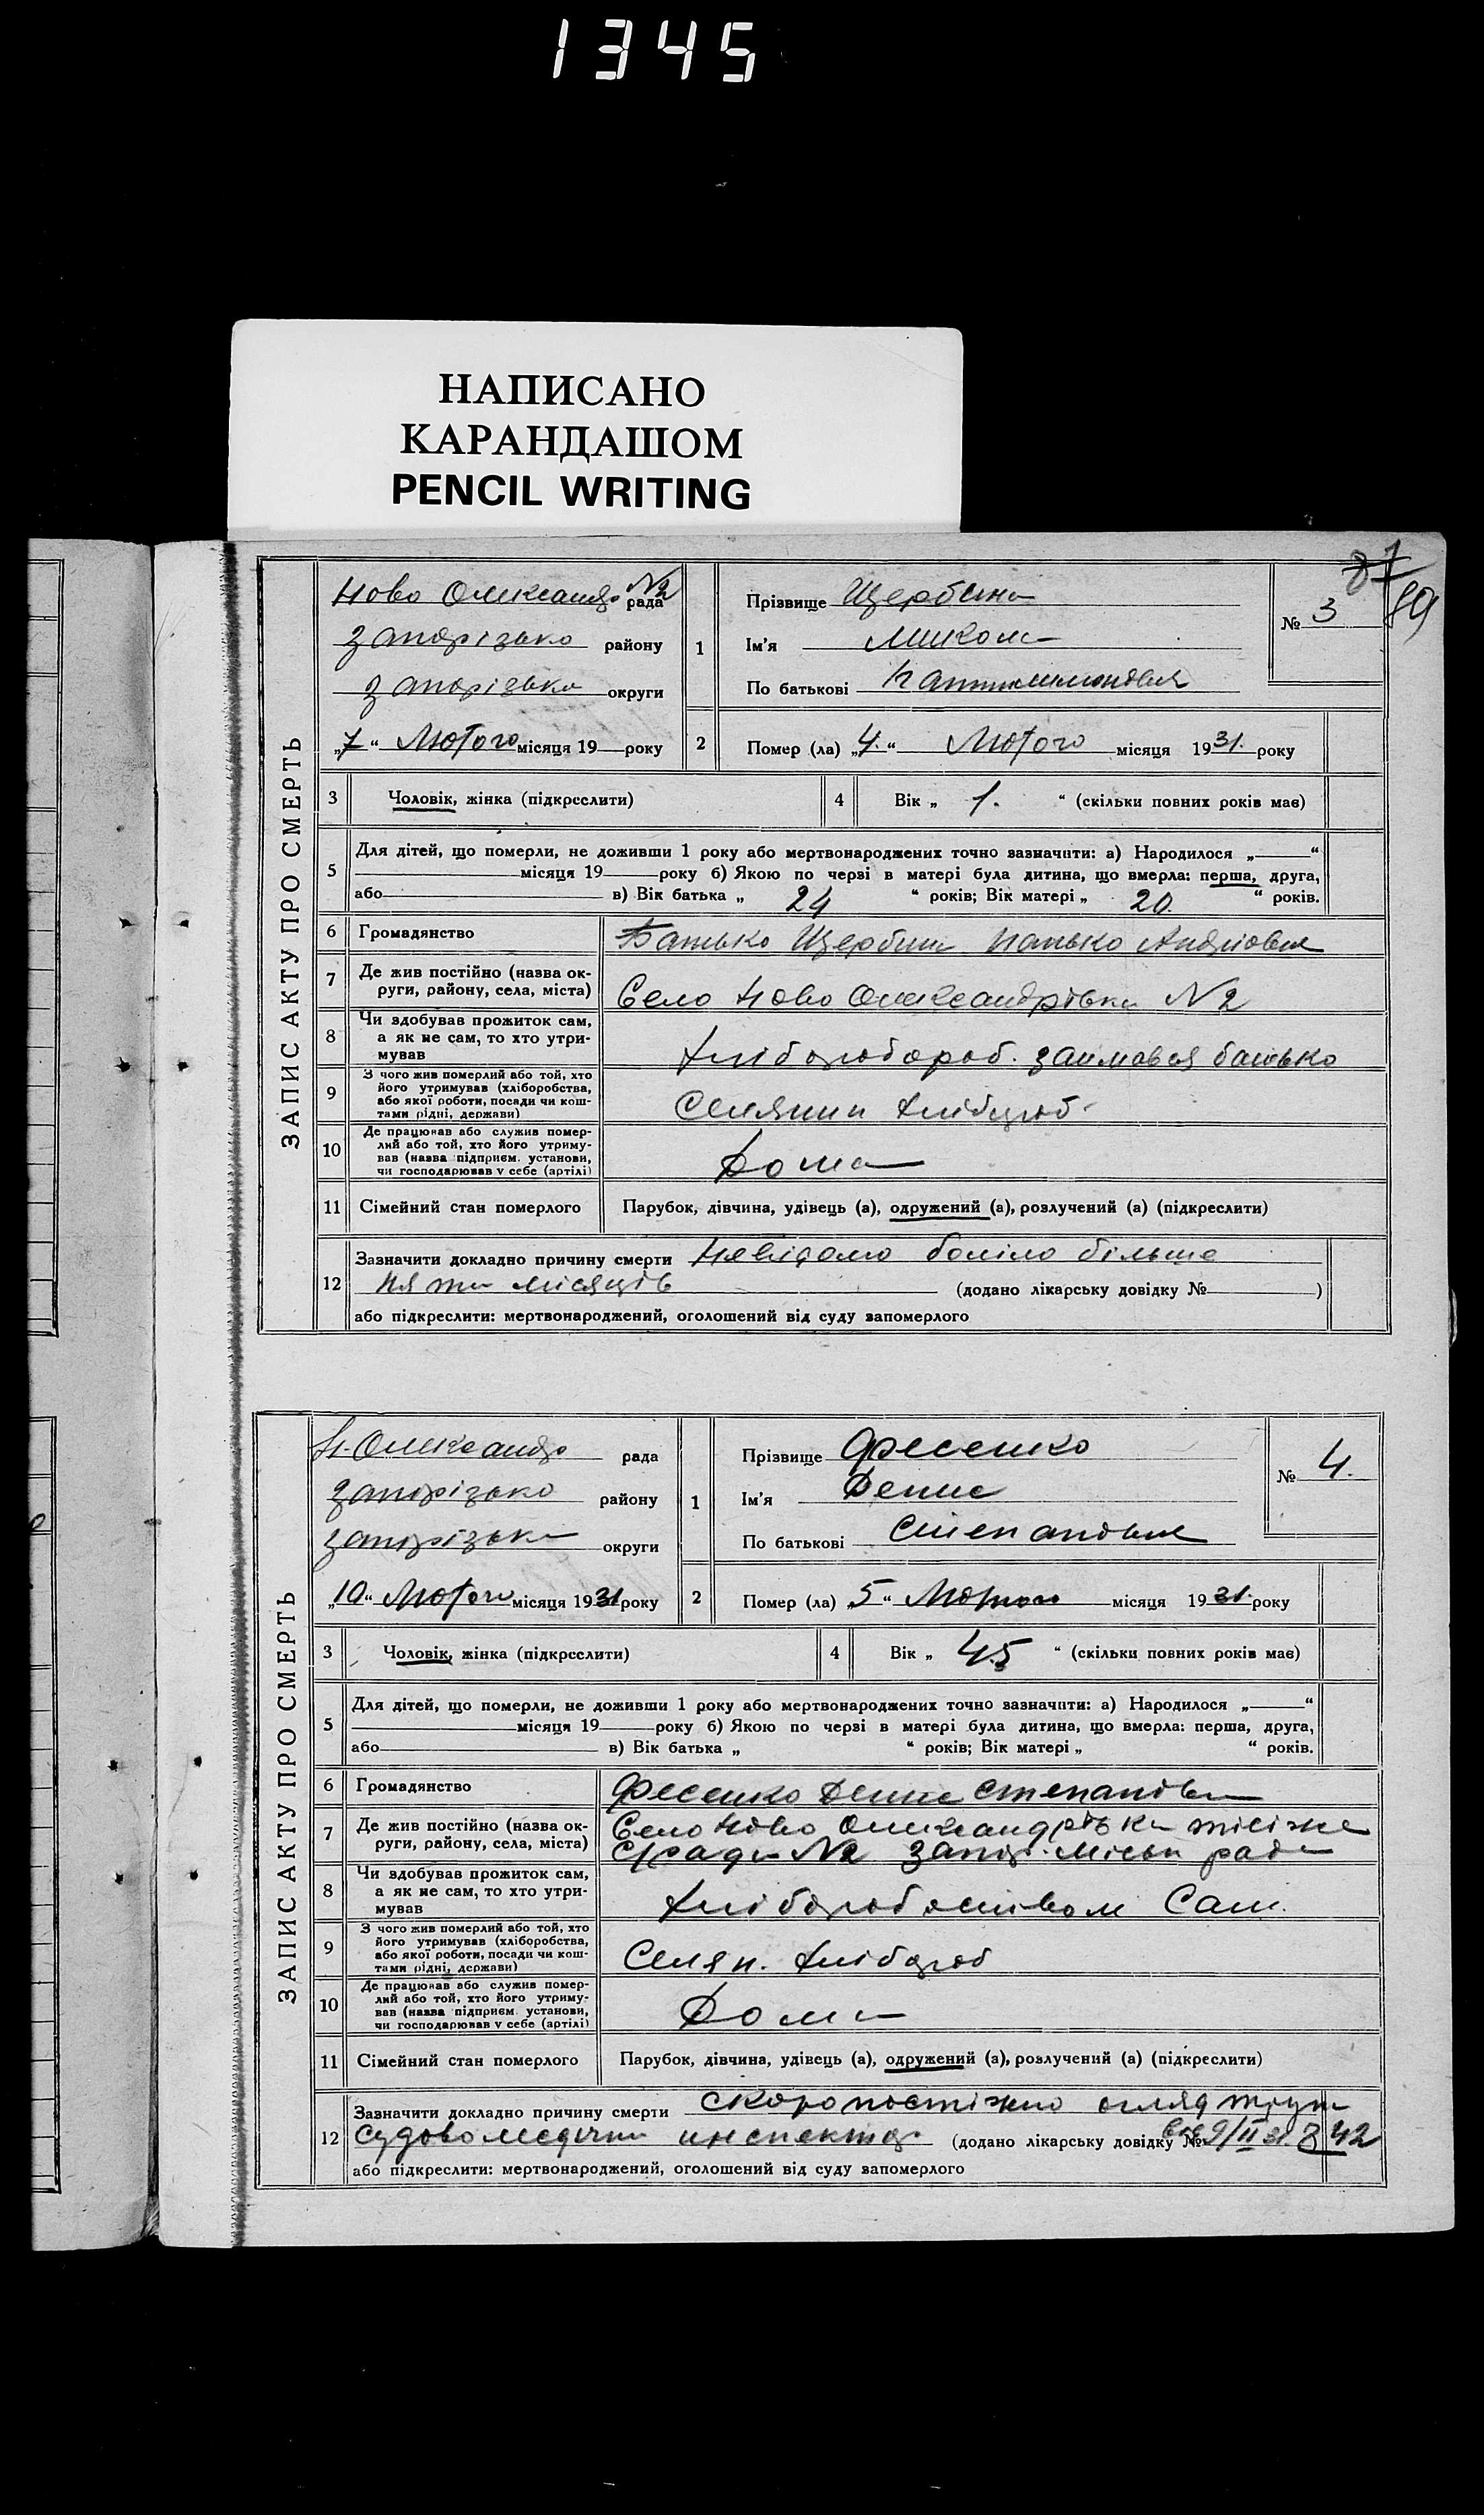 1345
НАПИСАНО
КАРАНДАШОМ
PENCIL WRITING
87
89
ЗАПИС АКТУ ПРО СМЕРТЬ
Ново Олександр. №2 рада
Запорізько району
Запорізько округи
„7“ Лютого місяця 19 року
1
Прізвище Щербина
Ім'я Микола
По батькові
№ 3
2
Помер (ла) „4.“ Лютого місяця 1931. року
3 Чоловік, жінка (підкреслити)
4 Вік „ 1. “ (скільки повних років має)
5 Для дітей, що померли, не доживши 1 року або мертвонароджених точно зазначити: а) Народилося „ “
місяця 19 року б) Якою по черзі в матері була дитина, що вмерла: перша, друга,
або в) Вік батька „ 24 “ років; Вік матері „ 20. “ років.
6 Громадянство Батько Щербина
7 Де жив постійно (назва ок-
руги, району, села, міста) Село Ново Олександрівка №2
8 Чи здобував прожиток сам,
а як не сам, то хто утри-
мував батько
9 З чого жив померлий або той, хто
його утримував (хліборобства,
або якої роботи, посади чи кош-
тами рідні, держави) Селянин хлібороб
10 Де працював або служив помер-
лий або той, хто його утриму-
вав (назва підприєм. установи,
чи господарював у себе (артілі) Дома
11 Сімейний стан померлого Парубок, дівчина, удівець (а), одружений (а), розлучений (а) (підкреслити)
12 Зазначити докладно причину смерти Невідомо боліло більше
пяти місяців (додано лікарську довідку № )
або підкреслити: мертвонароджений, оголошений від суду запомерлого
ЗАПИС АКТУ ПРО СМЕРТЬ
Н-Олександр. рада
Запорізько району
Запорізька округи
„10“ Лютого місяця 1931 року
1
Прізвище Фесенко
Ім'я Денис
По батькові Степанович
№ 4.
2
Помер (ла) „5“ Лютого місяця 1931. року
3 Чоловік, жінка (підкреслити)
4 Вік „ 45 “ (скільки повних років має)
5 Для дітей, що померли, не доживши 1 року або мертвонароджених точно зазначити: а) Народилося „ “
місяця 19 року б) Якою по черзі в матері була дитина, що вмерла: перша, друга,
або в) Вік батька „ “ років; Вік матері „ “ років.
6 Громадянство Фесенко Денис Степанович
7 Де жив постійно (назва ок-
руги, району, села, міста) Село Ново Олександрівка
с/ради №2 Запор. міськ ради
8 Чи здобував прожиток сам,
а як не сам, то хто утри-
мував Хліборобством Сам.
9 З чого жив померлий або той, хто
його утримував (хліборобства,
або якої роботи, посади чи кош-
тами рідні, держави) Селян. хлібороб
10 Де працював або служив помер-
лий або той, хто його утриму-
вав (назва підприєм. установи,
чи господарював у себе (артілі) Дома
11 Сімейний стан померлого Парубок, дівчина, удівець (а), одружений (а), розлучений (а) (підкреслити)
12 Зазначити докладно причину смерти скоропостіжно огляд трупа
судово медични инспектор (додано лікарську довідку № від 9/II 31 842
або підкреслити: мертвонароджений, оголошений від суду запомерлого